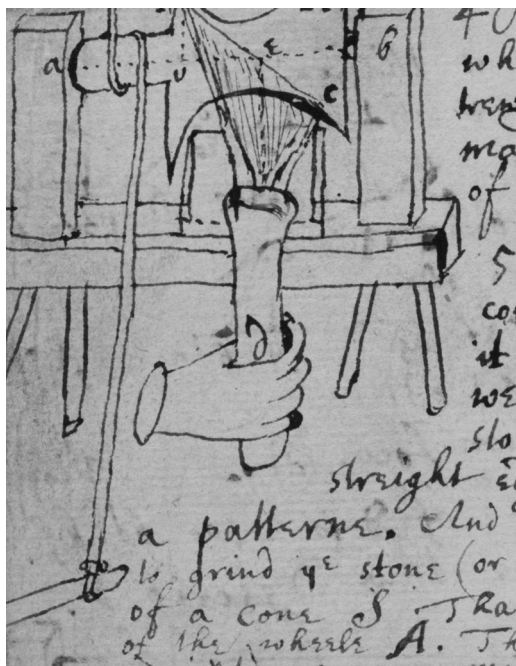 a
e
b
v
c
wh
ma
of
5
co
it
we
slo
d
streight
a patterne. And
to grind ye stone (or
of a cone S. Tha
of the wheele A. Th